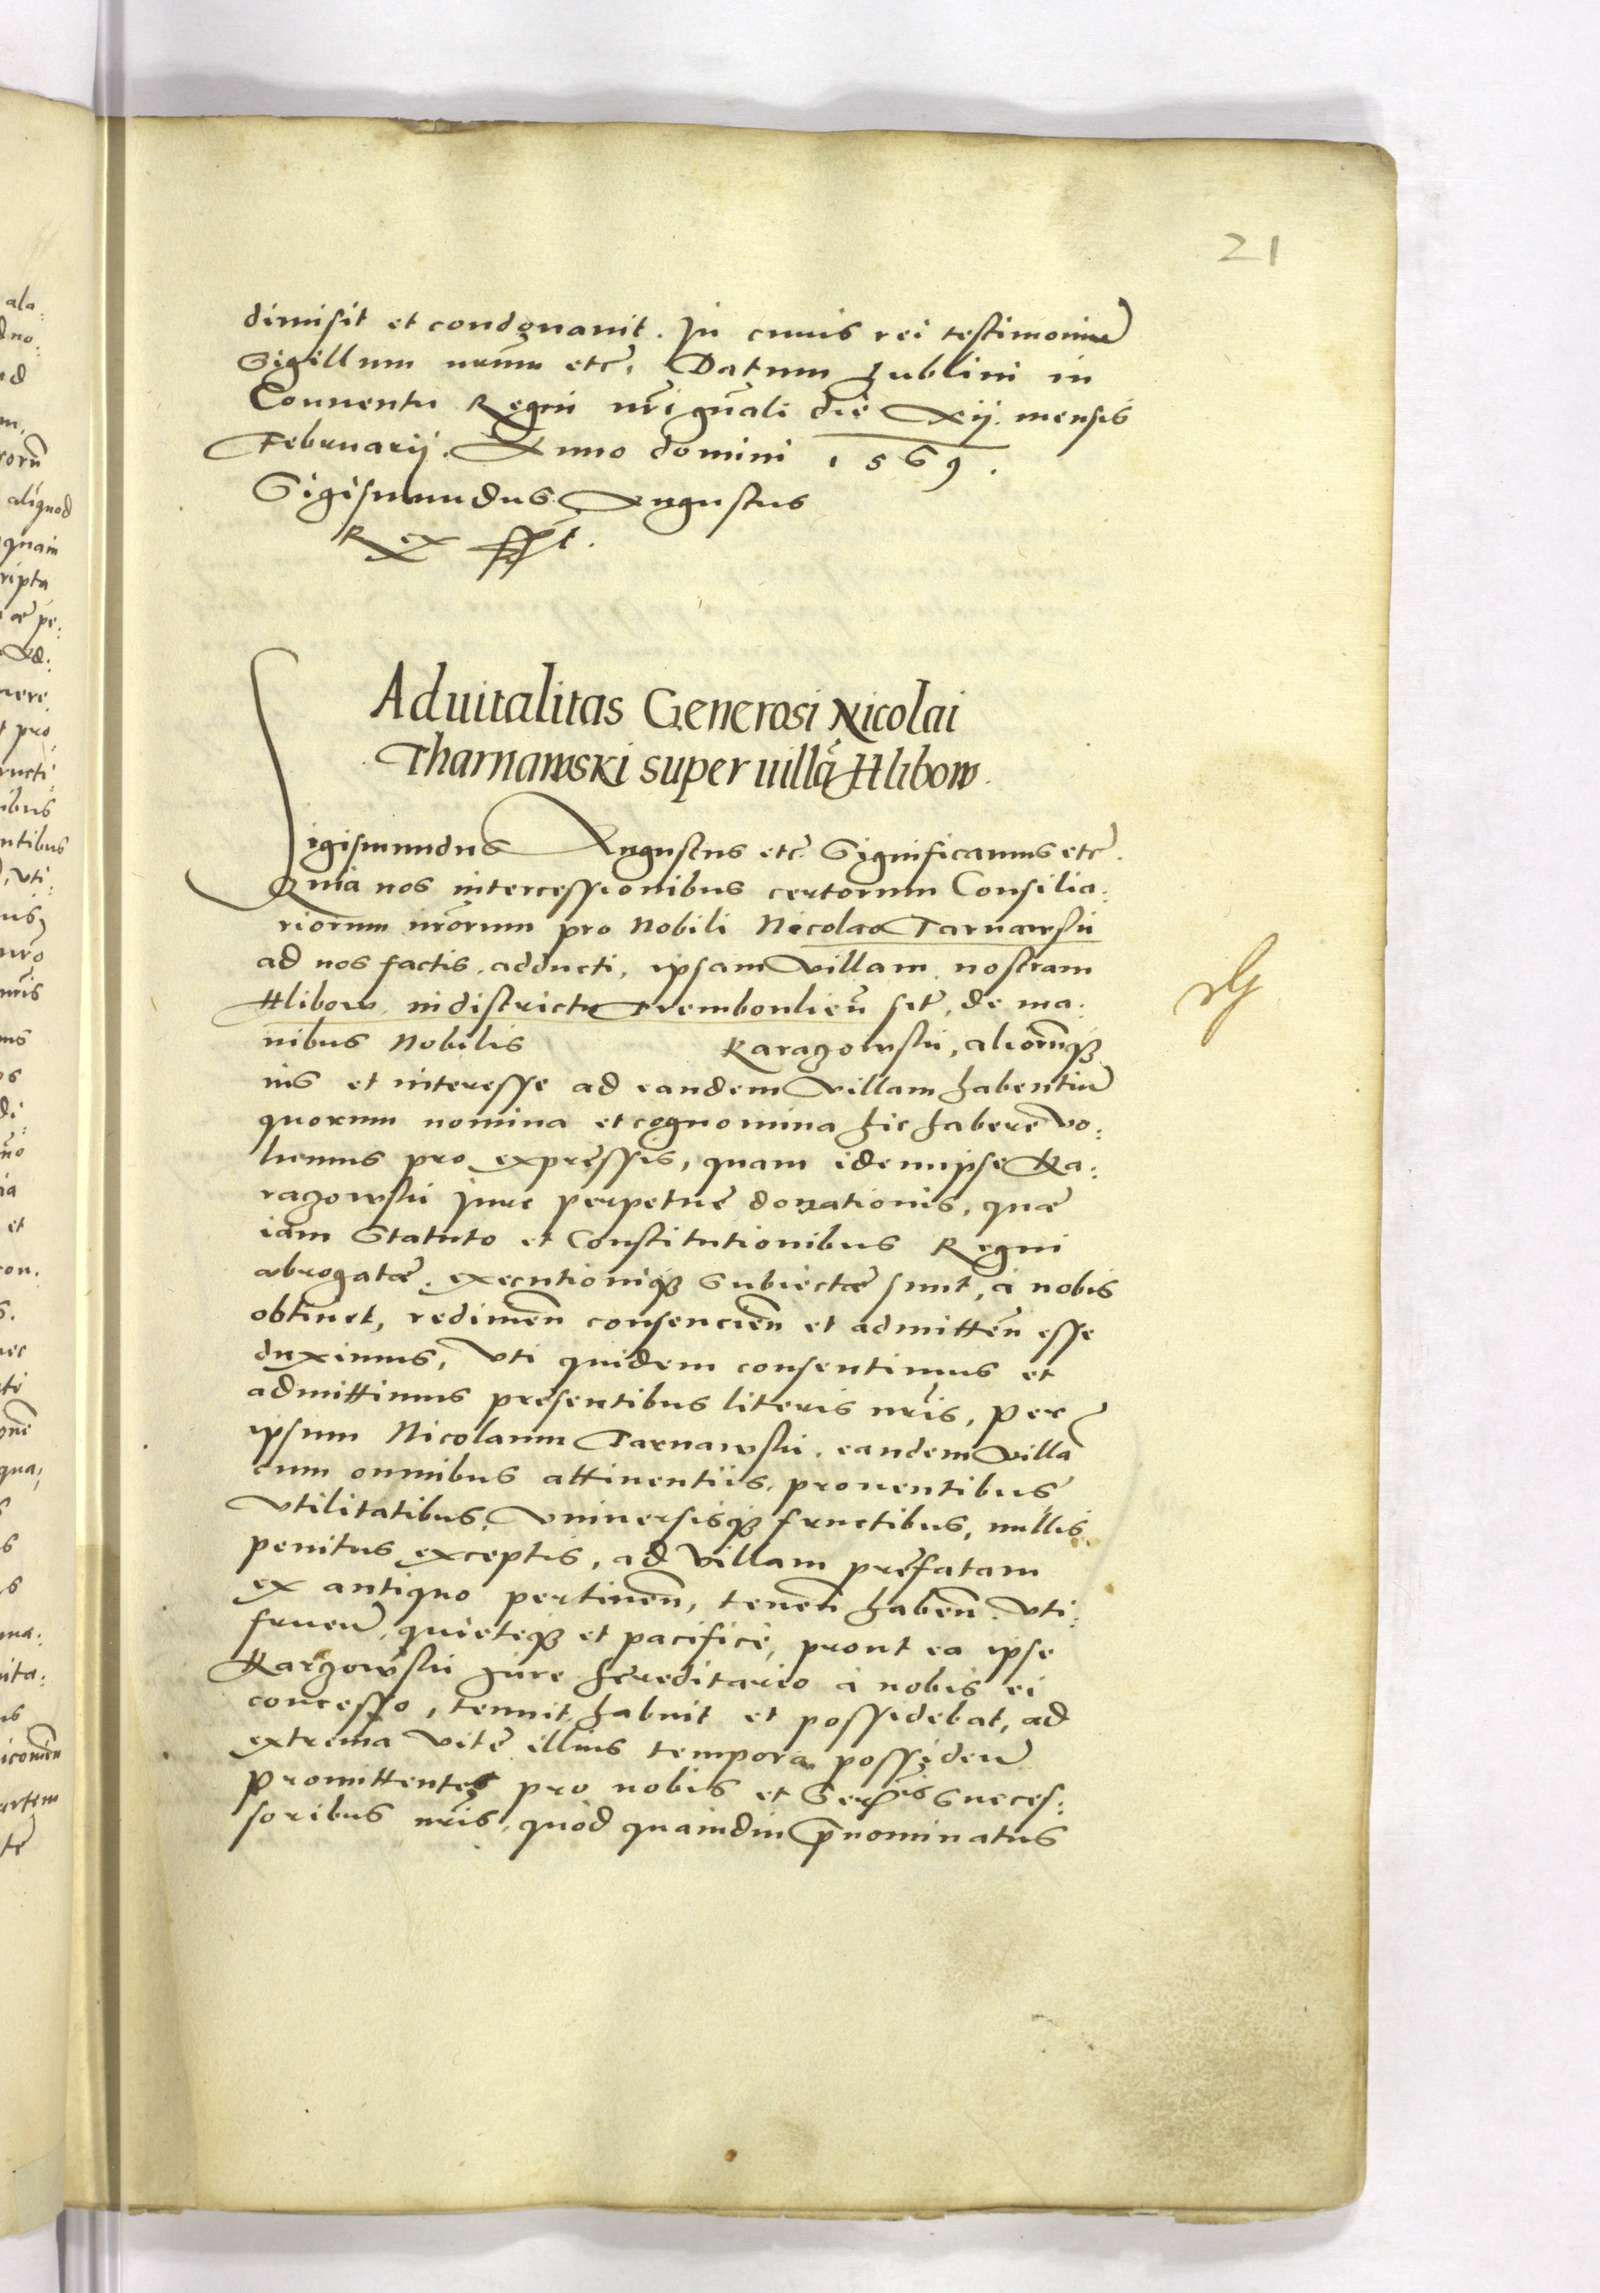 21
dimisit et condonauit. In cuius rei testimoniũ
Sigillum nrũm etc̃. Datum Lublini in
Conuentu Regni nrĩ gñali die Xij. mensis
Februarij. Anno domini 1569.
Sigismundus Augustus
Rex sspt.
Aduitalitas Generosi Nicolai
Tharnawski super uillã Hlibow.
Sigismundus Augustus etc̃. Significamus etc̃.
Quia nos intercessionibus certorum Consilia:
riorum nr̃orum pro Nobili Nicolao Tarnawski
ad nos factis, adducti, ipsam villam nostram
Hlibow, in districtu Trembowlieñ sit̃, de ma:
nibus Nobilis Karagowski, aliorumq3
ius et interesse ad eandem villam habentiũ
quorum nomina et cognomina hic habere vo:
lumus pro expressis, quam idem ipse Ka:
ragowski Jure perpetuę donationis, quæ
iam Statuto et Constitutionibus Regni
abrogatæ, executioniq3 subiectæ sunt, à nobis
obtinet, redimeñ consencieñ et admitteñ esse
duximus, Vti quidem consentimus et
admittimus presentibus literis nrĩs, per
ipsum Nicolaum Tarnawski, eandem villã
cum omnibus attinentiis, prouentibus
Vtilitatibus, Vniuersisq3 fructibus, nullis
penitus exceptis, ad Villam prefatam
ex antiquo pertineñ, teneñ habeñ. Vti:
frueñ, quieteq3 et pacificè, prout ea ipse
Kargowski Jure hęreditario à nobis ei
concesso, tenuit habuit et possidebat, ad
extrema Vitę illius tempora possideñ
Promittentes pro nobis et Serm̃is Succes:
soribus nrĩs, quod quamdiu p̃nominatus